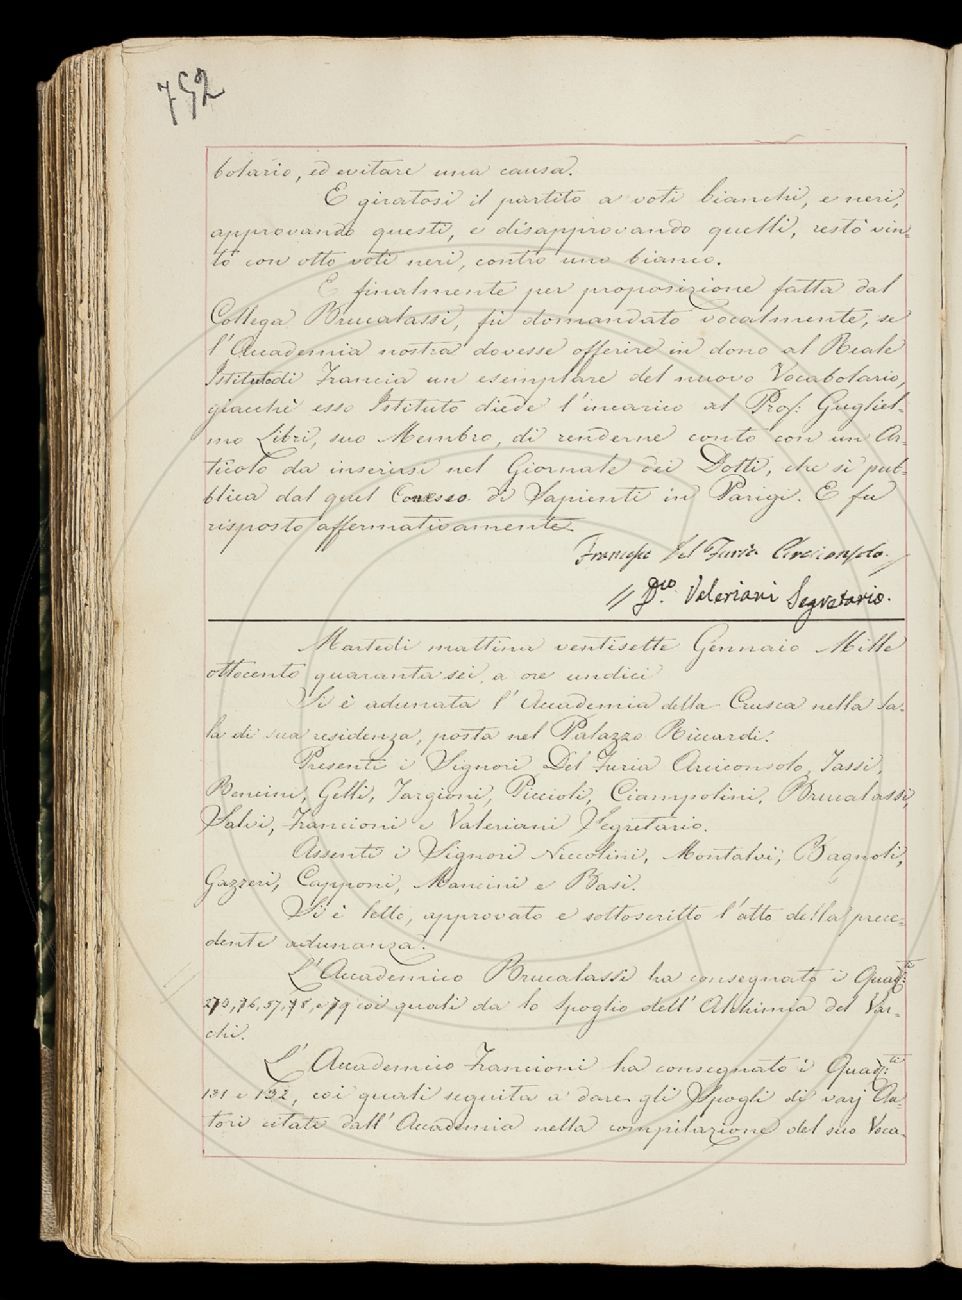 752
bolario, ed evitare una causa.
E giratosi il partito a voti bianchi, e neri,
approvando questi, e disapprovando quelli, restò vin-
to con otto voti neri, contro uno bianco.
E finalmente per proposizione fatta dal
Collega Brucalassi, fù domandato vocalmente, se
l'Accademia nostra dovesse offerire in dono al Reale
Istituto di Francia un esemplare del nuovo Vocabolario,
giacchè esso Istituto diede l'incarico al Prof: Gugliel-
mo Libri, suo Membro, di renderne conto con un Ar-
ticolo da inserirsi nel Giornale dei Dotti, che si pub-
blica dal quel Consesso di Sapienti in Parigi. E fu
risposto affermativamente.
Francesco Del Furia Arciconsolo.
D.co Valeriani Segretario.
Martedì mattina ventisette Gennaio Mille
ottocento quaranta sei, a ore undici
Si è adunata l'Accademia della Crusca nella Sa-
la di sua residenza, posta nel Palazzo Riccardi.
Presenti i Signori Del Furia Arciconsolo, Tassi,
Bencini, Gelli, Targioni, Piccioli, Ciampolini, Brucalassi,
Salvi, Francioni e Valeriani Segretario.
Assenti i Signori Niccolini, Montalvi, Bagnoli,
Gazzeri, Capponi, Mancini e Basi.
Si è letto, approvato e sottoscritto l'atto della prece-
dente adunanza.
L'Accademico Brucalassi ha consegnato i Quad:ti
coi quali da lo spoglio dell'Alchimia del Var-
chi.
L'Accademico Francioni ha consegnato i Quad:ti
131 e 132, coi quali seguita a dare gli Spogli di varj Au-
tori citati dall'Accademia nella compilazione del suo Voca-